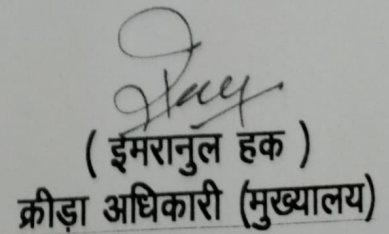 ( ईमरानुल हक )
क्रीड़ा अधिकारी (मुख्यालय)